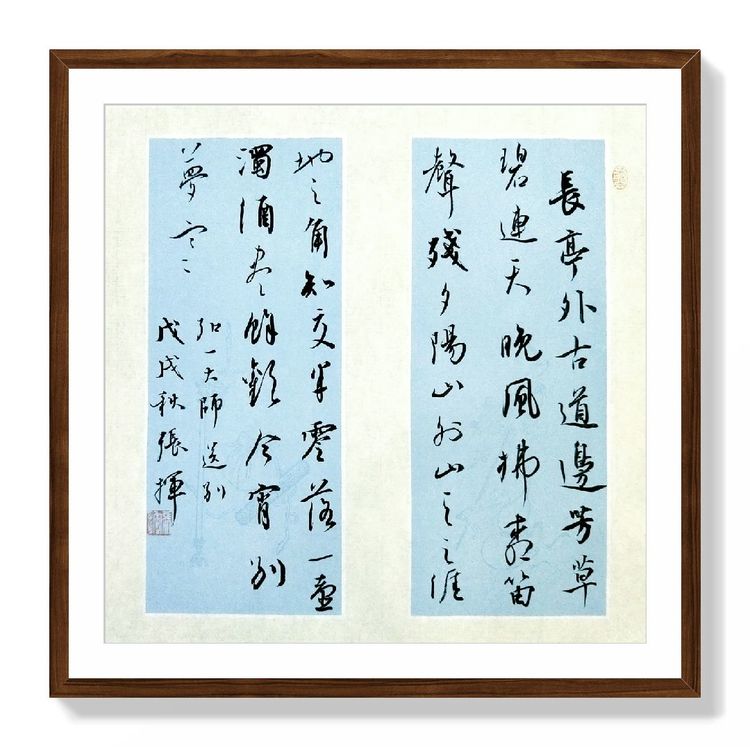 長亭外古道邊芳草
碧連天晚風拂柳笛
聲殘夕陽山外山天之涯
地之角知交半零落一壺
濁酒盡餘歡今宵別
夢寒
弘一大師送別
戊戌秋張揮